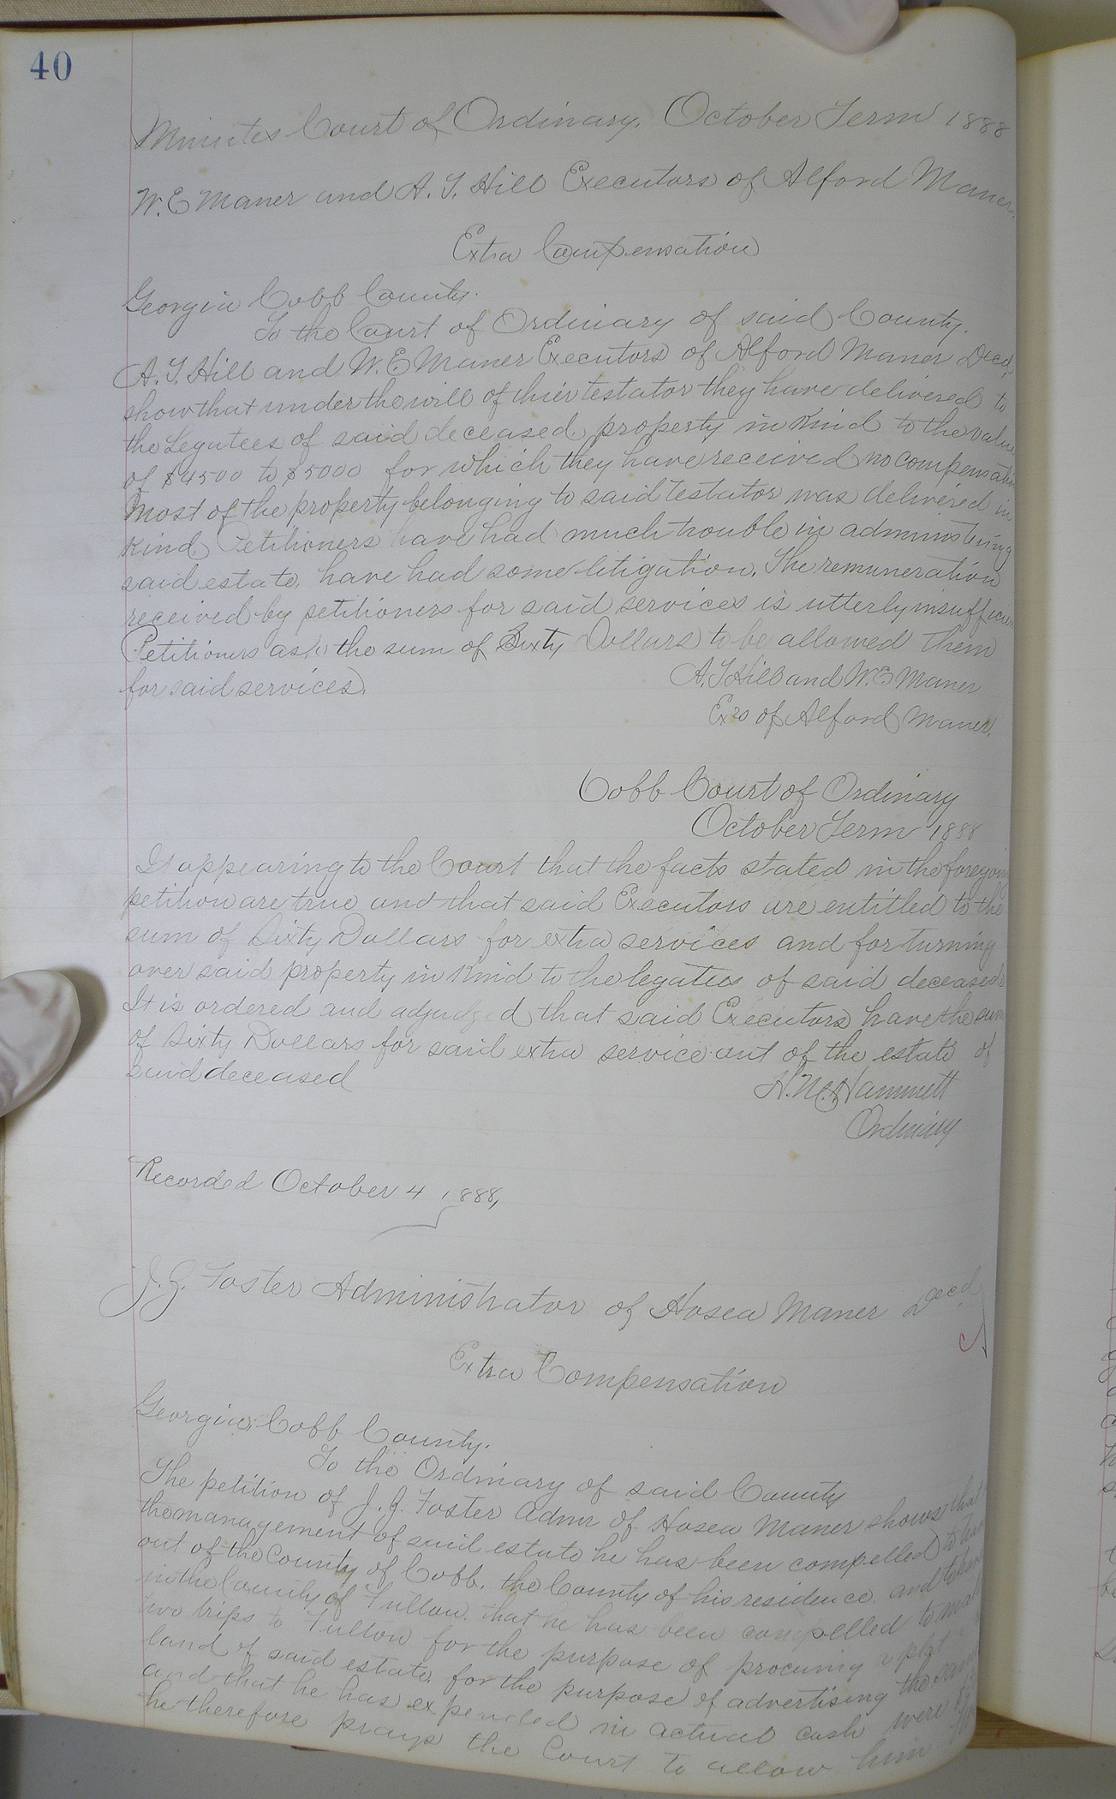 40
Minutes Court of Ordinary. October Term 1888
W. E. Maner and A. T. Hill Executors of Alford Maner.
Extra Compensation
Georgia Cobb County.
To the Court of Ordinary of said County.
A. T. Hill and W. E. Maner Executors of Alford Maner Decd,
show that under the will of thier testator they have delivered to
the Legatees of said deceased property in Kind to the value
of $4500 to $5000 for which they have received no compensation
Most of the property belonging to said Testator was delivered in
Kind Petitioners have had much trouble in administering
said estate, have had some litigation. The remuneration
received by petitioners for said services is utterly insufficient
Petitioners ask the sum of Sixty Dollars to be allowed them
for said services.
A. T. Hill and W. E. Maner
Exrs of Alford Maner.
Cobb Court of Ordinary
October Term 1888
It appearing to the Court that the facts stated in the foregoing
petition are true and that said Executors are entitled to the
sum of Sixty Dollars for extra services and for turning
over said property in Kind to the legatees of said deceased
It is ordered and adjudged that said Executors have the sum
of Sixty Dollars for said extra service out of the estate of
said deceased
H. M. Hammett
Ordinary
Recorded October 4, 1888,
J. G. Foster Administrator of Hosea Maner Decd
Extra Compensation
Georgia, Cobb County.
To the Ordinary of said County
The petition of J. G. Foster Admr of Hosea Maner shows that
the management of said estate he has been compelled to
out of the County of Cobb, the County of his residence and
in the County of Fulton, that he has been compelled to make
two trips to Fulton for the purpose of procuring a plat
land of said estate, for the purpose of advertising the
and that he has expended in actual cash were
he therefore prays the Court to allow him